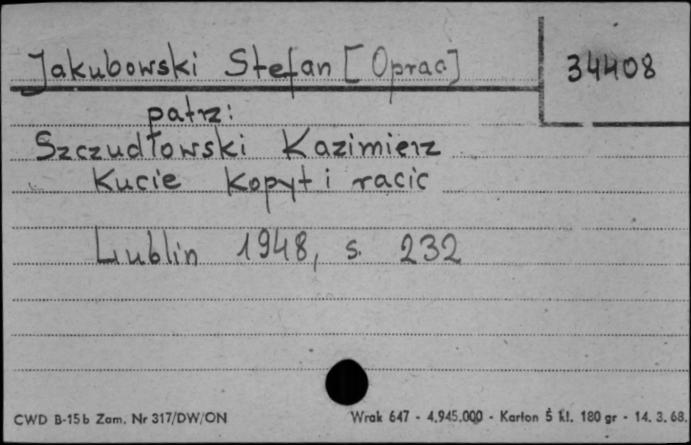 Jakubowski Stefan [Oprac] 34408
patrz:
Szczudłowski Kazimierz
Kucie kopyt i racic
Lublin 1948, s. 232
CWD B-15b Zam. Nr 317/DW/ON Wrak 647 - 4.945.000 - Karton 5 kl. 180 gr - 14. 3. 68.